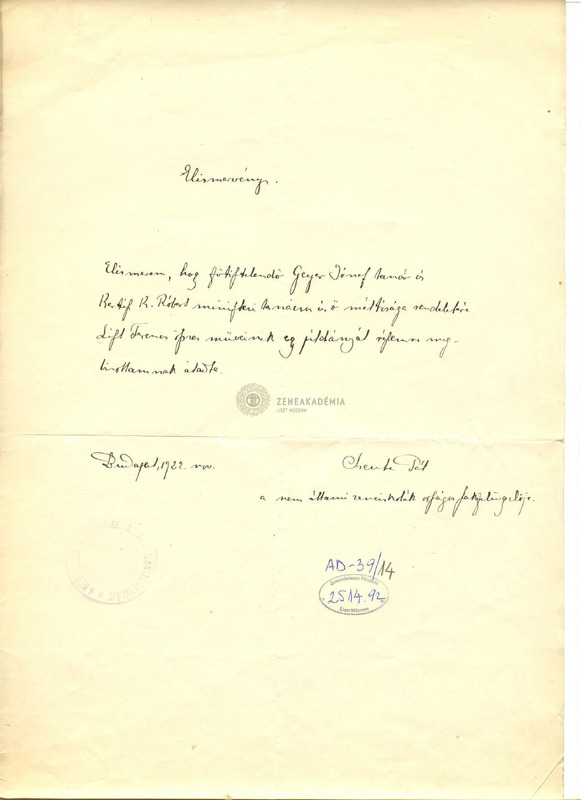 Elismervény.
Elismerem, hogy főtisztelendő Geyer József tanár és
Kertész K. Róbert miniszteri tanácsos úr ő méltósága rendeletére
Liszt Ferenc összes műveinek egy példányát részemre meg-
bízottamnak átadta.
ZENEAKADÉMIA
LISZT MÚZEUM
Budapest, 1922. nov.
Pál
a nem állami zeneiskolák országos szakfelügyelője.
AD-39/14
2514.92
Liszt Múzeum